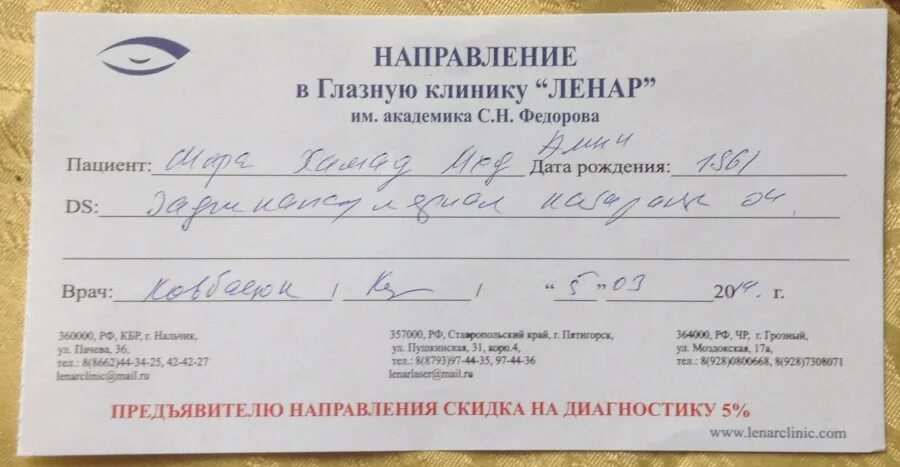 НАПРАВЛЕНИЕ
в Глазную клинику “ЛЕНАР”
им. академика С.Н. Федорова
Пациент: Хамад Амин Дата рождения: 1961
DS: Заднекапсулярная катаракта
Врач: / / “5” 03 2014 г.
360000, РФ, КБР, г. Нальчик,
ул. Пачева, 36,
тел.: 8(8662)44-34-25, 42-42-27
lenarclinic@mail.ru
357000, РФ, Ставропольский край, г. Пятигорск,
ул. Пушкинская, 31, корп.4,
тел.: 8(8793)97-44-35, 97-44-36
lenarlaser@mail.ru
364000, РФ, ЧР, г. Грозный,
ул. Моздокская, 17а,
тел.: 8(928)0800668, 8(928)7308071
ПРЕДЪЯВИТЕЛЮ НАПРАВЛЕНИЯ СКИДКА НА ДИАГНОСТИКУ 5%
www.lenarclinic.com